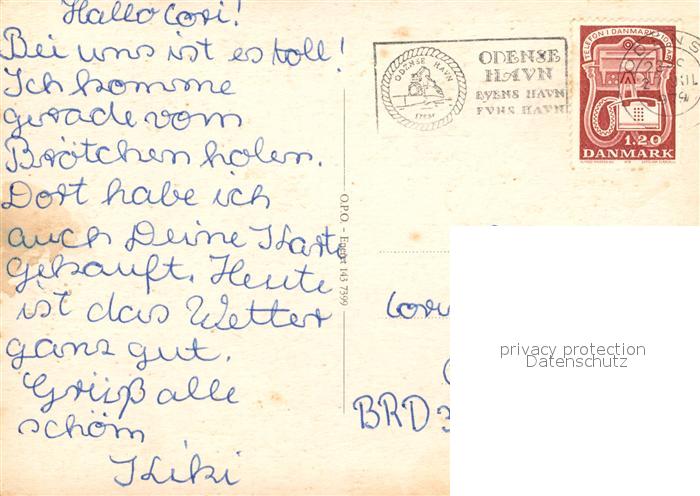 Hallo Cori!
Bei uns ist es toll!
Ich komme
gerade vom
Brötchen holen.
Dort habe ich
auch Deine Karte
gekauft. Heute
ist das Wetter
ganz gut.
Grüß alle
schön
Kiki
O.P.O. - Eneret 143 7399
ODENSE HAVN
ODENSE
HAVN
BYENS HAVN
FYNS HAVN
TELEFON I DANMARK 100 ÅR
1.20
DANMARK
BRD
privacy protection
Datenschutz